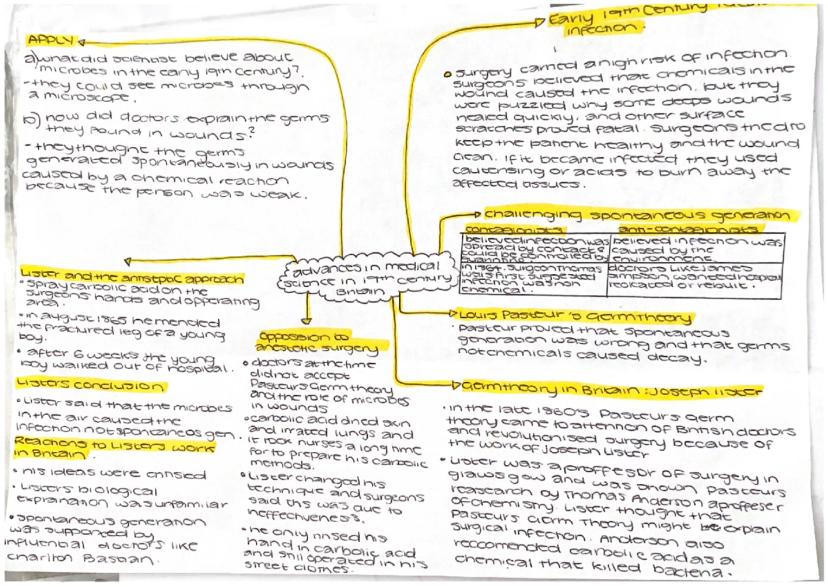 APPLY
a) what did scientist believe about
microbes in the early 19th century?
- they could see microbes through
a microscope.
b) how did doctors explain the germs
they found in wounds?
- they thought the germs
generated spontaneously in wounds
caused by a chemical reaction
because the person was weak.
Early 19th Century
infection.
surgery carried a high risk of infection.
surgeons believed that chemicals in the
wound caused the infection, but they
were puzzled why some deeps wounds
healed quickly, and other surface
scratches proved fatal. surgeons tried to
keep the patient healthy and the wound
clean. if it became infected they used
cauterising or acids to burn away the
affected issues.
challenging spontaneous generation
contagionists
believed infection was
spread by contact &
could be controlled by
in surgeon thomas
wells first suggested
infection was non
chemical.
anti-contagionists
believed infection was
caused by the
environment.
doctors like James
simpson wanted hospital
relocated or rebuilt.
advances in medical
science in 19th century
Britain
Louis Pasteur's Germ Theory
• pasteur proved that spontaneous
generation was wrong and that germs
not chemicals caused decay.
Germ theory in Britain: Joseph lister
• in the late 1860's Pasteurs Germ
theory came to attention of British doctors
and revolutionised surgery because of
the work of Joseph Lister
• Lister was a proffesor of surgery in
glawsgow and was shown Pasteurs
reasearch by Thomas Anderson a proffeser
of chemistry. Lister thought that
Pasteurs Germ Theory might be explain
surgical infection. Anderson also
reccomended carbolic acid as a
chemical that killed bacteria.
Lister and the antiseptic approach
• spray carbolic acid on the
surgeons hands and opperating
area.
• in august 1865 he mended
the fractured leg of a young
boy.
• after 6 weeks the young
boy walked out of hospital.
Listers conclusion
• Lister said that the microbes
in the air caused the
infection not spontaneos gen.
Reactions to Listers work
in Britain
• his ideas were critised
• Listers biological
explanation was unfamiliar
• spontaneous generation
was supported by
influential doctors like
charlton Bastian.
Oppossion to
anestetic surgery
• doctors at the time
did not accept
Pasteurs Germ theory
and the role of microbes
in wounds
• carbolic acid dried skin
and irrated lungs and
it took nurses a long time
for to prepare his carbolic
methods.
• Lister changed his
technique and surgeons
said this was due to
ineffectiveness.
• he only rinsed his
hand in carbolic acid
and still operated in his
street clothes.